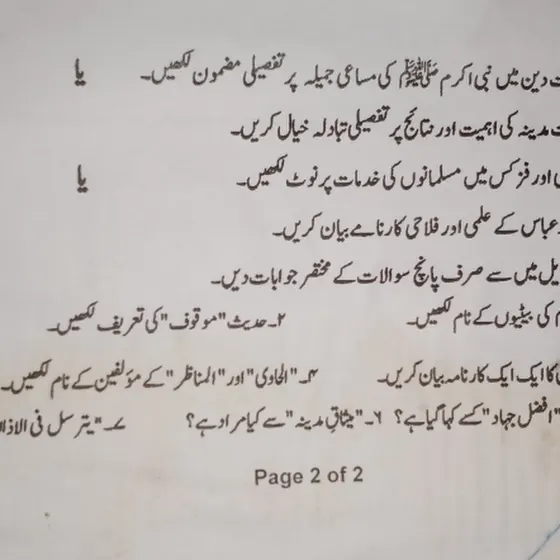 دین میں نبی اکرم ﷺ کی مساعی جمیلہ پر تفصیلی مضمون لکھیں۔ یا
مدینہ کی اہمیت اور نتائج پر تفصیلی تبادلہ خیال کریں۔
اور فزکس میں مسلمانوں کی خدمات پر نوٹ لکھیں۔ یا
عباس کے علمی اور فلاحی کارنامے بیان کریں۔
میں سے صرف پانچ سوالات کے مختصر جوابات دیں۔
کی بیٹیوں کے نام لکھیں۔ ۲۔ حدیث "موقوف" کی تعریف لکھیں۔
کا ایک ایک کارنامہ بیان کریں۔ ۴۔ "الحاوی" اور "المناظر" کے مؤلفین کے نام لکھیں۔
"افضل جہاد" کسے کہا گیا ہے؟ ۶۔ "میثاقِ مدینہ" سے کیا مراد ہے؟ ۷۔ "یترسل فی الاذا
Page 2 of 2